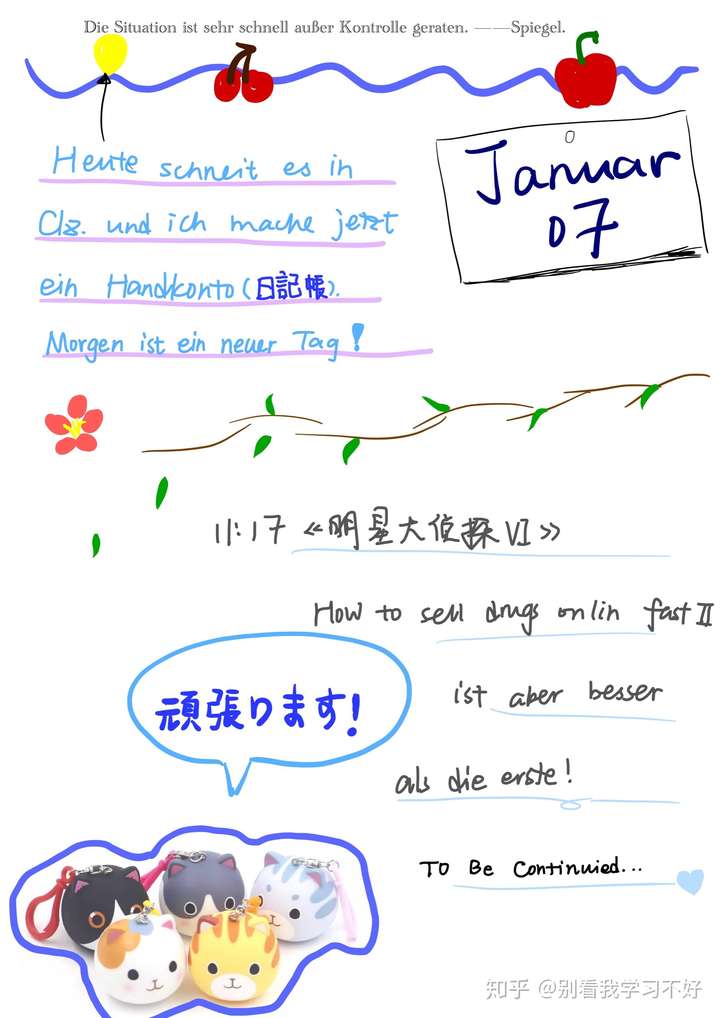 Die Situation ist sehr schnell außer Kontrolle geraten. ——Spiegel.
Januar
07
Heute schneit es in
Clz. und ich mache jetzt
ein Handkonto(日記帳).
Morgen ist ein neuer Tag!
11:17 《明星大侦探VI》
How to sell drugs onlin fast II
ist aber besser
als die erste!
頑張ります!
To Be Continuied...
知乎 @别看我学习不好